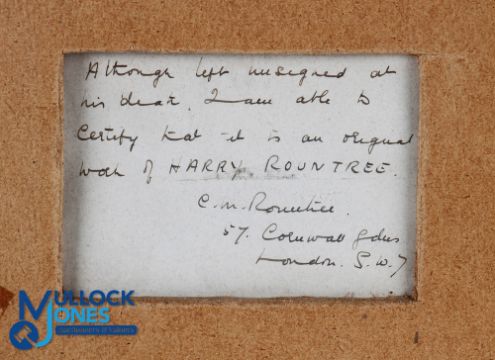 Although left unsigned at
his death, I am able to
Certify that it is an original
work of HARRY ROUNTREE.
C. M. Rountree.
57. Cornwall Gdns
London. S.W.7
MULLOCK
JONES